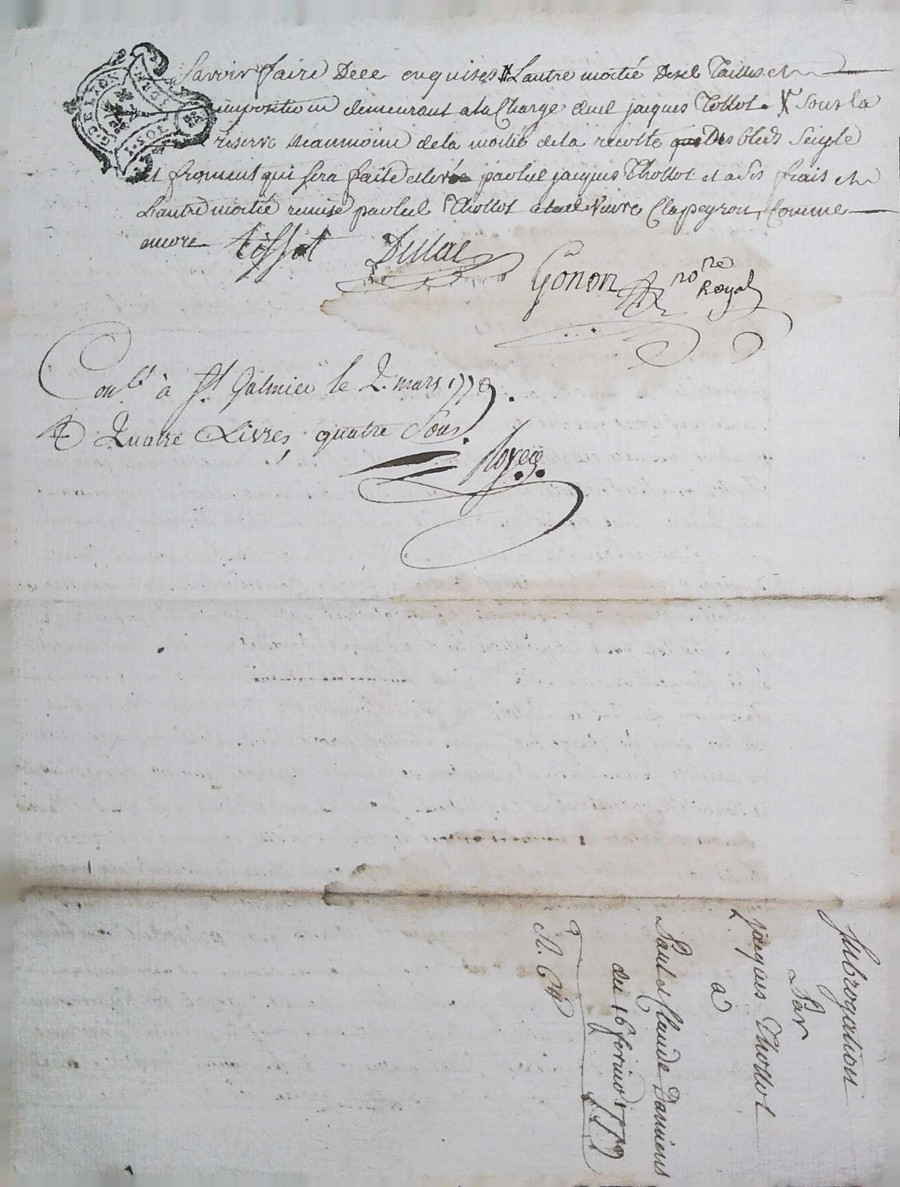 Savoir faire Dece enquises X Lautre moitié Desd. Tailles et
imposition demeurant ala Charge dud jacques Thollot. X sous la
reserve neanmoins dela moitié dela recolte Des bleds Seigle
et froment qui sera faite et levée par led jacques Thollot et a ses frais et
Lautre moitié remise par led Thollot alad veuve Clapeyron, Comme
encore
tissot Dulac
Gonon nore Royal
Conlé à St Galmier le 2. mars 177
Quatre Livres, quatre Sous.
Royer
G. DE LYON
Subrogation
Par
jacques Thollot
à
Paul et Claude Damiens
du 16 fevrier 177